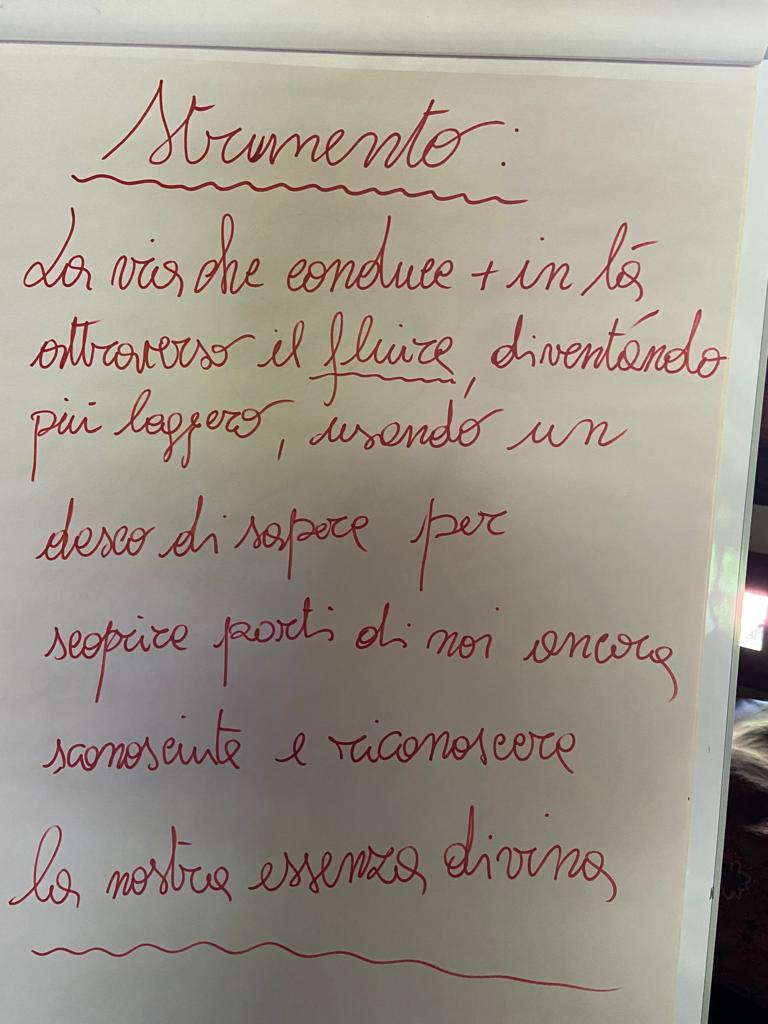 Strumento:
La via che conduce + in là
attraverso il fluire, diventando
più leggero, usando un
desco di sapere per
scoprire parti di noi ancora
sconosciute e riconoscere
la nostra essenza divina